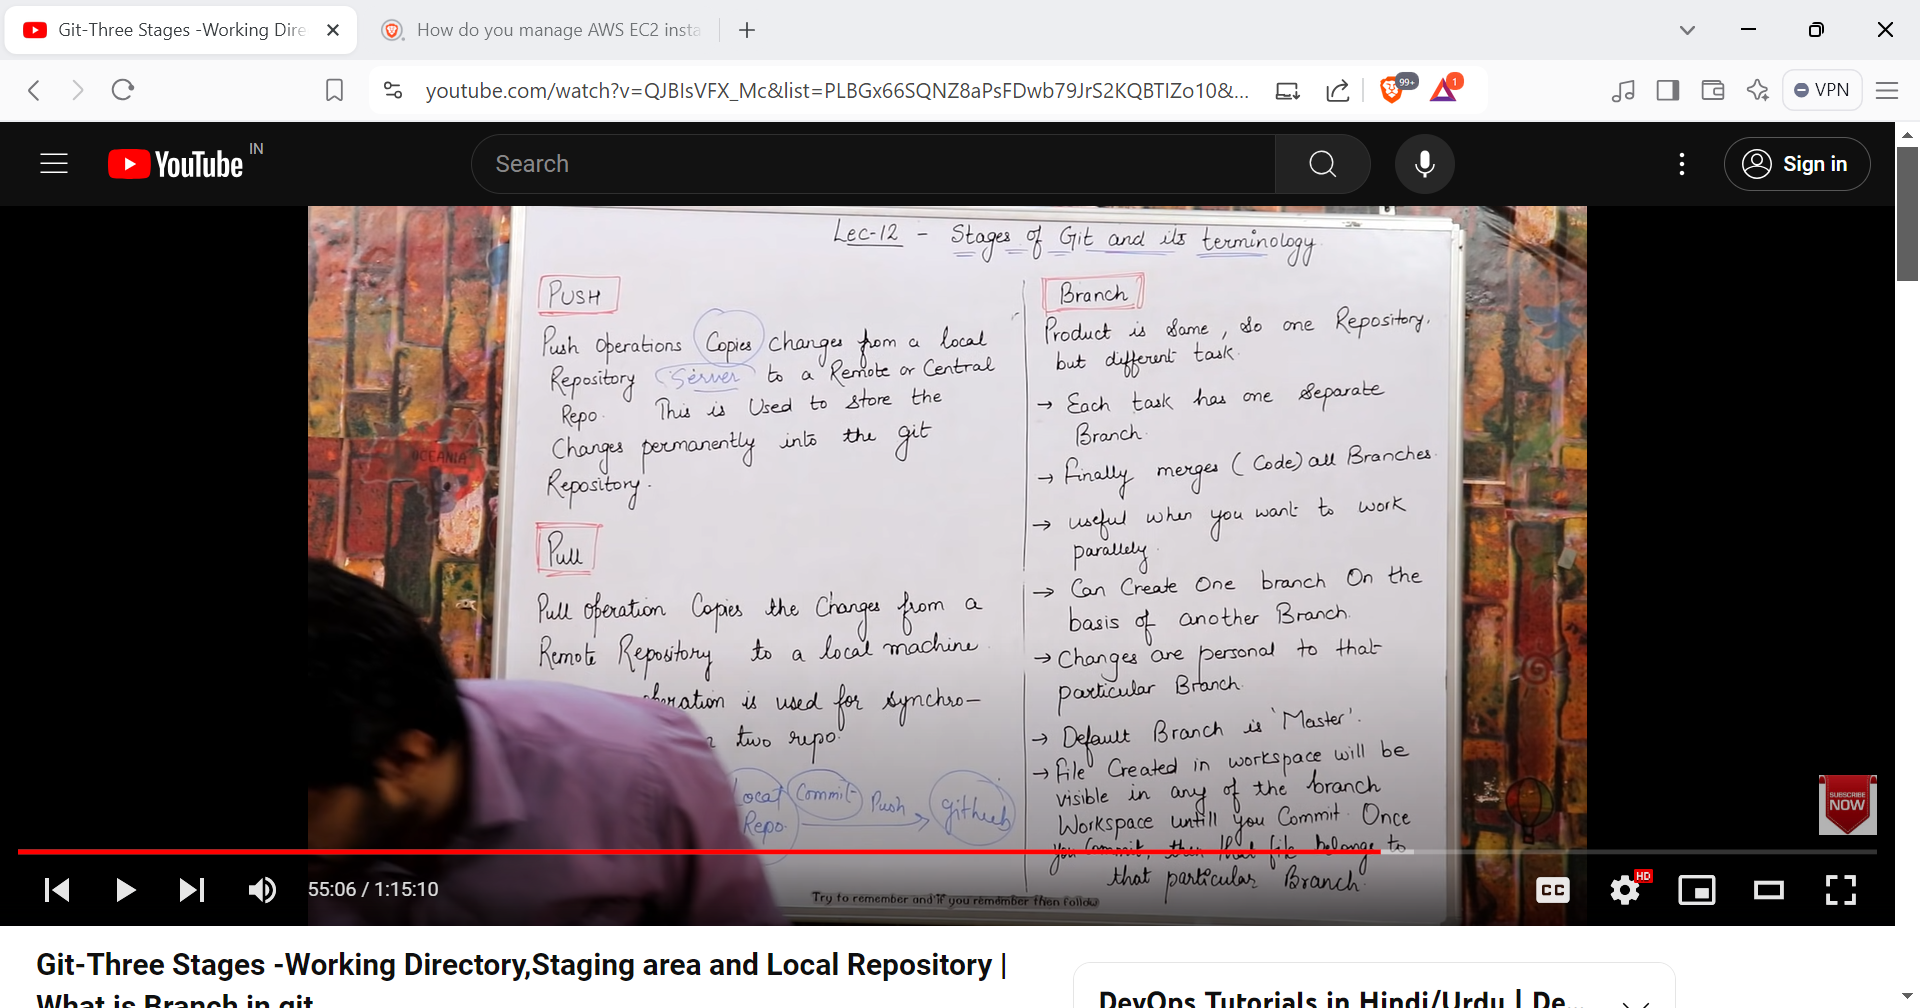 Git-Three Stages -Working Dire
How do you manage AWS EC2 insta
youtube.com/watch?v=QJBIsVFX_Mc&list=PLBGx66SQNZ8aPsFDwb79JrS2KQBTIZo10&...
99+
1
VPN
YouTube IN
Search
Sign in
Lec-12 - Stages of Git and its terminology
PUSH
Push operations Copies changes from a local
Repository Server to a Remote or Central
Repo. This is Used to store the
Changes permanently into the git
Repository.
Pull
Pull operation Copies the Changes from a
Remote Repository to a local machine
operation is used for synchro-
two repo.
Local Repo
Commit
Push
github
Branch
Product is same, so one Repository.
but different task.
→ Each task has one separate
Branch.
→ Finally merges (Code) all Branches.
→ useful when you want to work
parallely.
→ Can Create One branch On the
basis of another Branch.
→ Changes are personal to that
particular Branch.
→ Default Branch is 'Master'.
→ File Created in workspace will be
visible in any of the branch
Workspace untill you Commit. Once
you Commit, then that file belongs to
that particular Branch.
OCEANIA
Try to remember and if you remember then follow
SUBSCRIBE
NOW
55:06 / 1:15:10
CC
HD
Git-Three Stages -Working Directory,Staging area and Local Repository |
What is Branch in git
DevOps Tutorials in Hindi/Urdu | De...